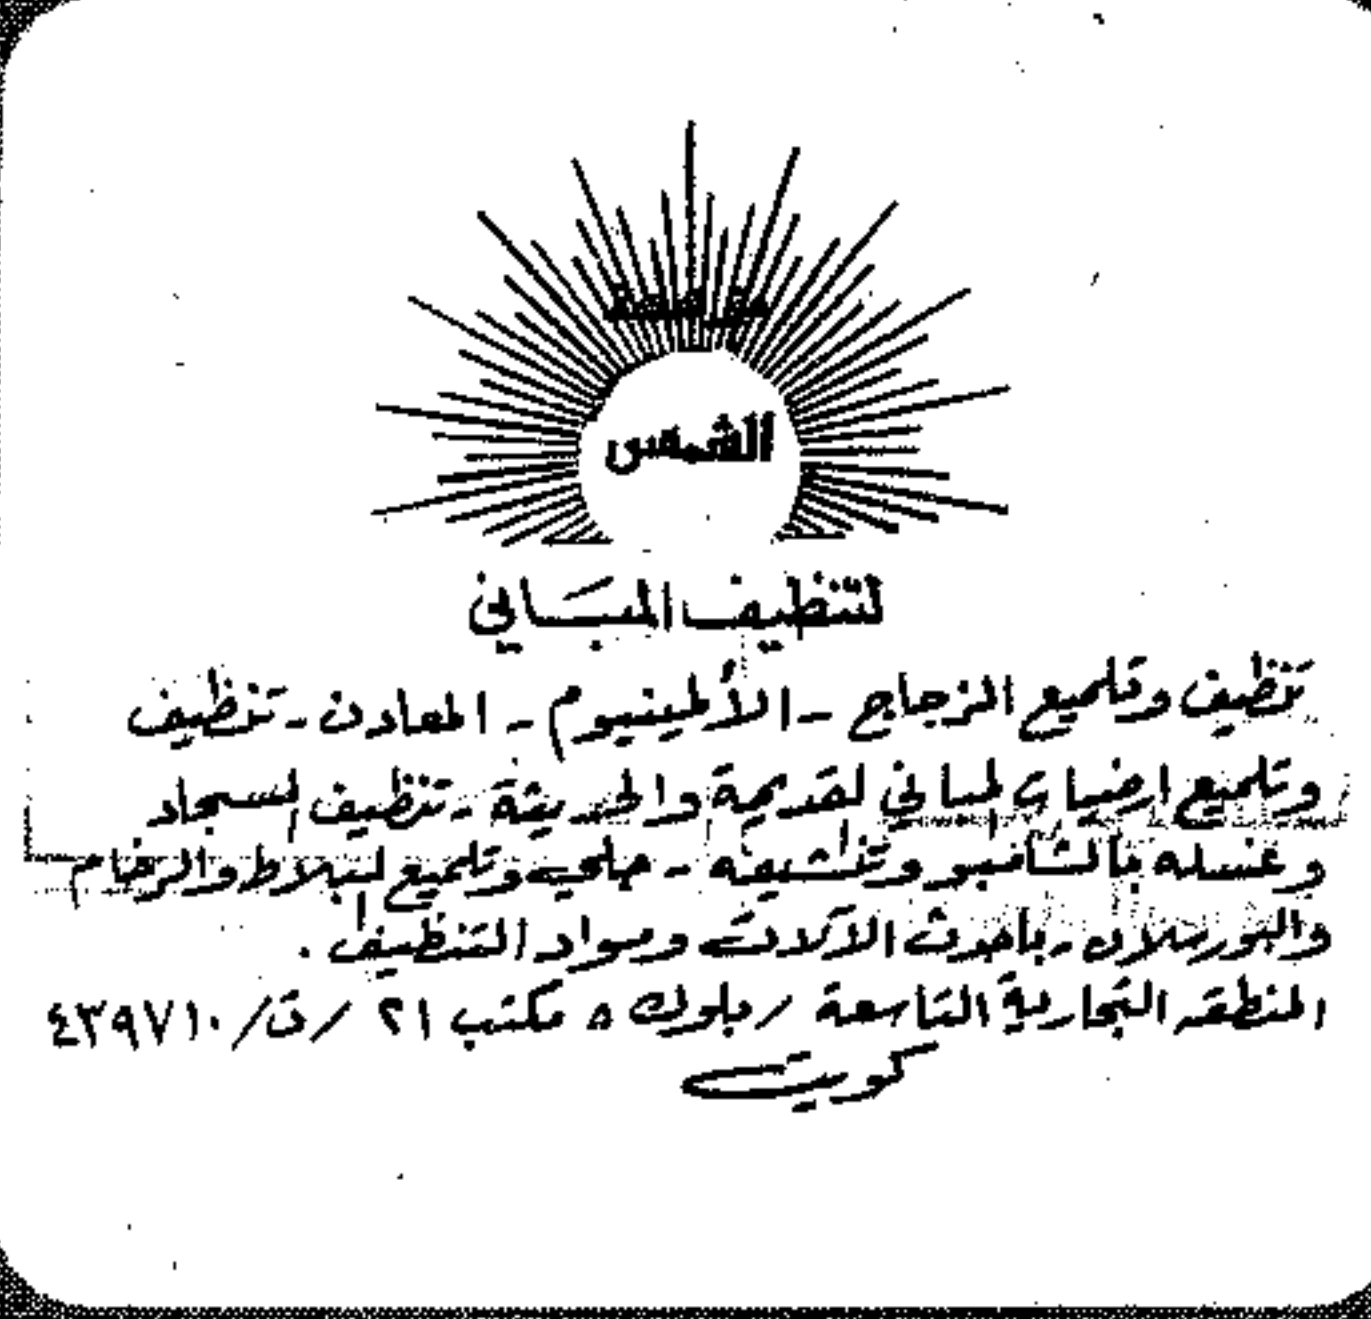 الشمس
لتنظيف المباني
تنظيف وتلميع الزجاج - الألمينيوم - المعادن - تنظيف
وتلميع ارضيات لمباني لقديمة والحديثة - تنظيف لسجاد
وغسله بالشامبو وتنشيفه - جلي وتلميع لبلاط والرخام
والبورسلان - باحدث الآلات ومواد التنظيف .
المنطقه التجارية التاسعة / بلوك ٨ مكتب ٢١ / ت / ٤٣٩٧١٠
كويت